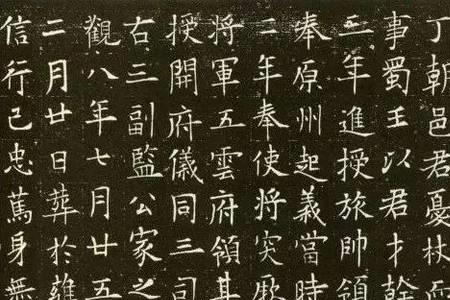 丁朝邑君憂杖而
事蜀王以君才幹
三年進授旅帥領
奉原州起義當時
二年奉使將突厥
將軍五雲府領其
授開府儀同三司
右三副監公家之
觀八年七月廿五
二月廿日葬於雍
信行己忠篤身無